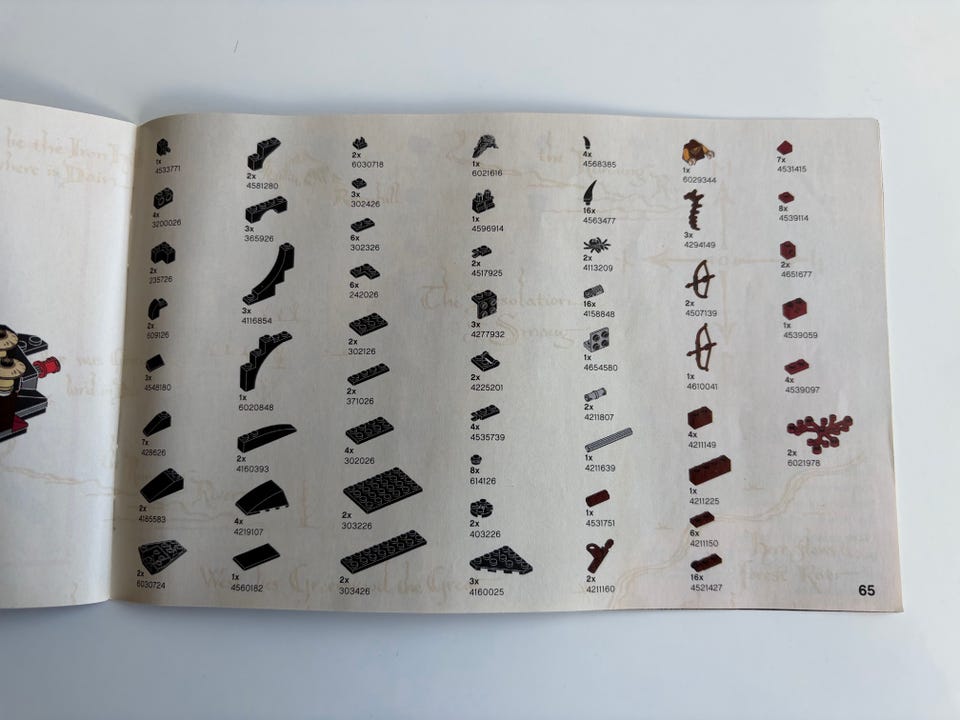 1x
4533771
4x
3200026
2x
235726
2x
609126
3x
4548180
7x
428626
2x
4185583
2x
6030724
2x
4581280
3x
365926
3x
4116854
1x
6020848
2x
4160393
4x
4219107
1x
4560182
2x
6030718
3x
302426
6x
302326
6x
242026
2x
302126
2x
371026
4x
302026
2x
303226
2x
303426
1x
6021616
1x
4596914
2x
4517925
3x
4277932
2x
4225201
4x
4535739
8x
614126
2x
403226
3x
4160025
4x
4568385
16x
4563477
2x
4113209
16x
4158848
1x
4654580
2x
4211807
1x
4211639
1x
4531751
2x
4211160
1x
6029344
3x
4294149
2x
4507139
1x
4610041
4x
4211149
1x
4211225
6x
4211150
16x
4521427
7x
4531415
8x
4539114
2x
4651677
1x
4539059
4x
4539097
2x
6021978
65